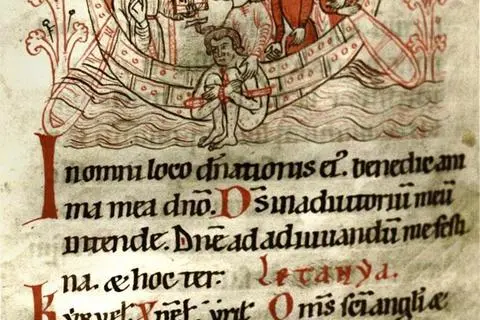 In omni loco dñationis ei⁹. benedic ani
ma mea dño. D̅s in adiutoriũ meũ
intende. Dñe ad adiuuandũ me festi
na. & hoc ter. Letanya.
Om̅s sc̅i angli &